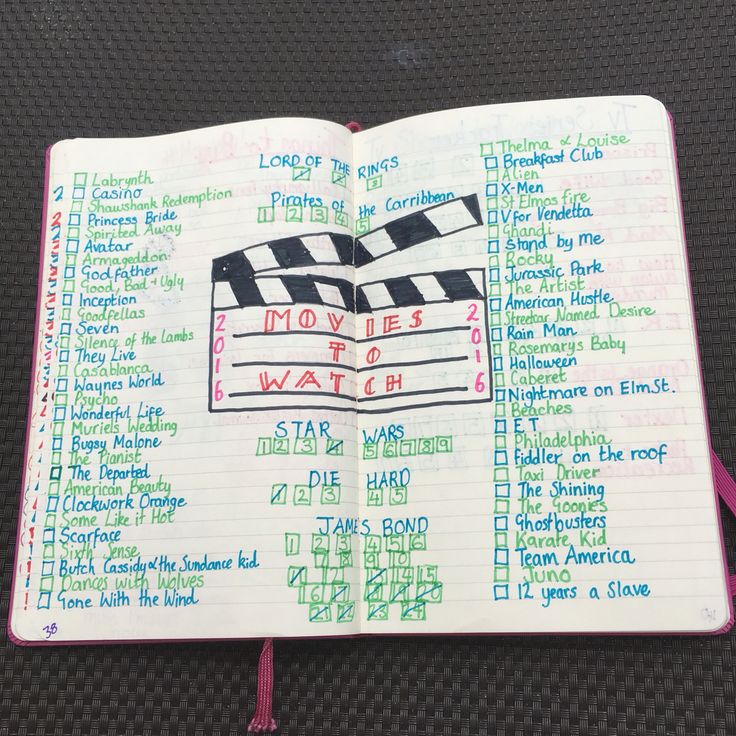 Labrynth
2 Casino
Shawshank Redemption
2 Princess Bride
Spirited Away
Avatar
Armageddon
Godfather
Good, Bad + Ugly
Inception
Goodfellas
Seven
Silence of the Lambs
They Live
Casablanca
Waynes World
Psycho
Wonderful Life
Muriels Wedding
Bugsy Malone
The Pianist
The Departed
American Beauty
Clockwork Orange
Some Like it Hot
Scarface
Sixth Sense
Butch Cassidy & the Sundance kid
Dances with Wolves
Gone With the Wind
38
LORD OF THE RINGS
1 2 3
Pirates of the Carribbean
1 2 3 4 5
2016
MOVIES
TO
WATCH
2016
STAR WARS
1 2 3 4 5 6 7 8 9
DIE HARD
1 2 3 4 5
JAMES BOND
1 2 3 4 5 6
7 8 9 10
11 12 13 14 15
20
21 22 23 24
Thelma & Louise
Breakfast Club
Alien
X-Men
St Elmos fire
V for Vendetta
Ghandi
Stand by Me
Rocky
Jurassic Park
The Artist
American Hustle
Streetcar Named Desire
Rain Man
Rosemarys Baby
Halloween
Caberet
Nightmare on Elm St.
Beaches
E.T
Philadelphia
fiddler on the roof
Taxi Driver
The Shining
The Goonies
Ghostbusters
Karate Kid
Team America
Juno
12 years a Slave